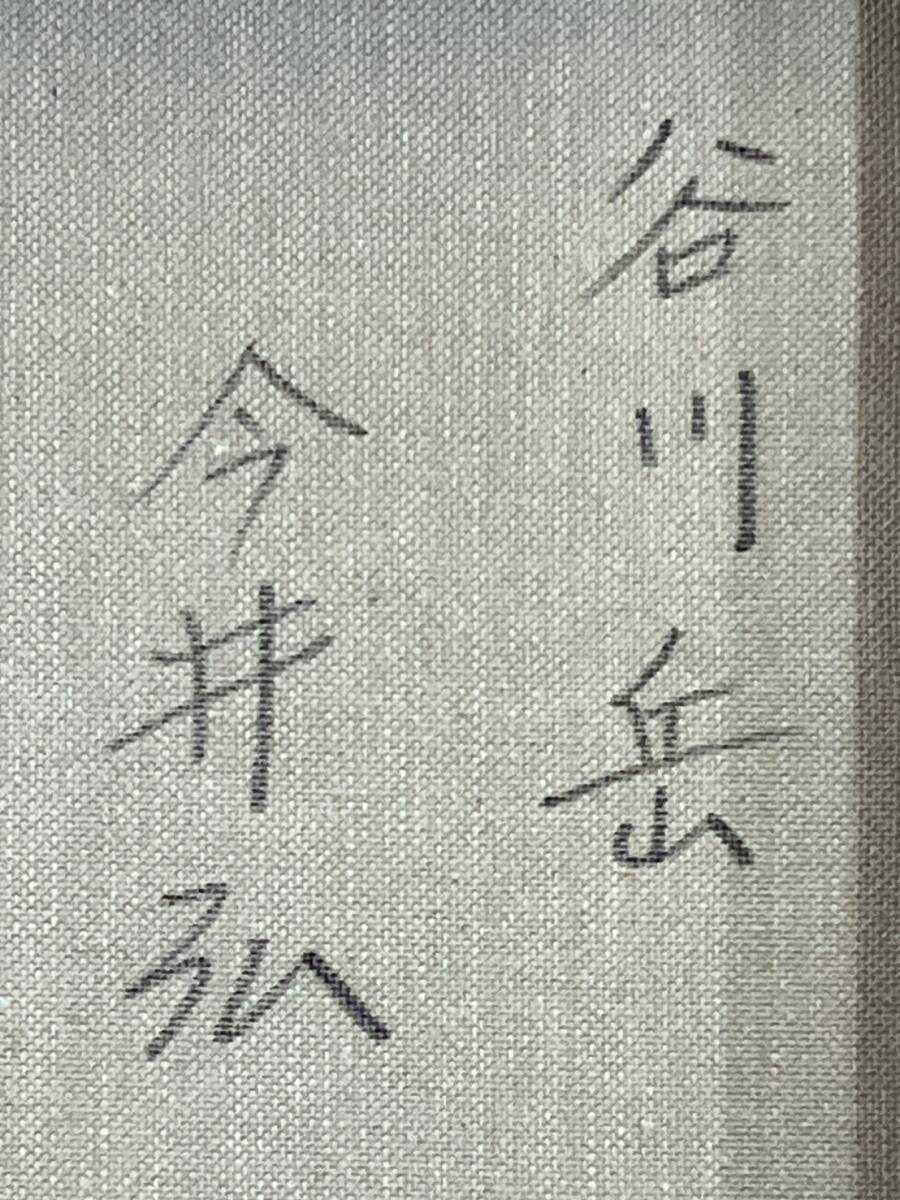 谷川岳
今井弘